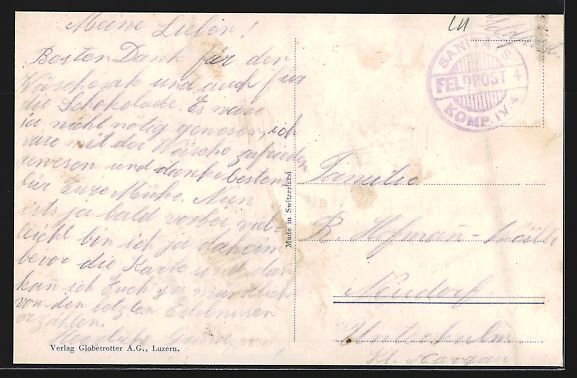 Meine Lieben!
Besten Dank für der
Wäschesak und auch für
die Schokolade. Es wäre
ja nicht nötig gewesen, ich
wäre mit der Wäsche zufrieden
gewesen und danke bestens
für Eure Mühe. Nun
ists ja bald vorbei, viel-
leicht bin ich ja daheim
bevor die Karte und dan
kan ich Euch ja mündlich
von den letzten Erlebnissen
erzählen.
Verlag Globetrotter A.G., Luzern.
Made in Switzerland
FELDPOST 4
KOMP. IV/4
Familie
R. Hofmann-
Neudorf
Unterkulm
Kt. Aargau